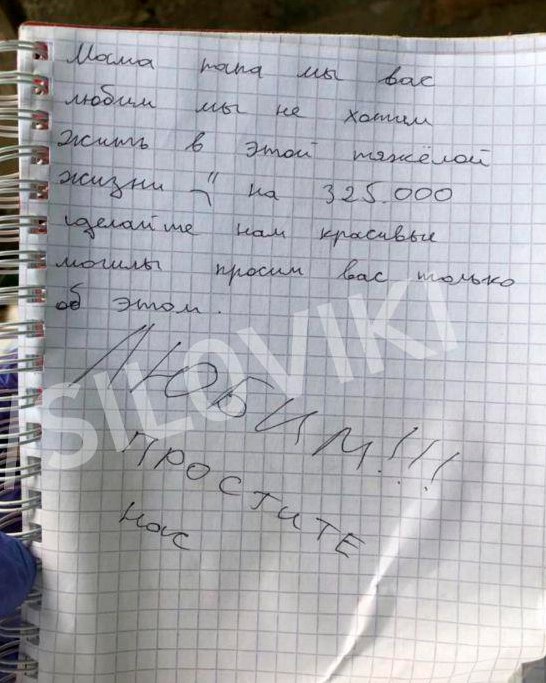 Мама папа мы вас
любим мы не хотим
жить в этой тяжёлой
жизни " на 325.000
сделайте нам красивые
могилы просим вас только
об этом.
ЛЮБИМ!!!
ПРОСТИТЕ
Нас
SILOVIKI